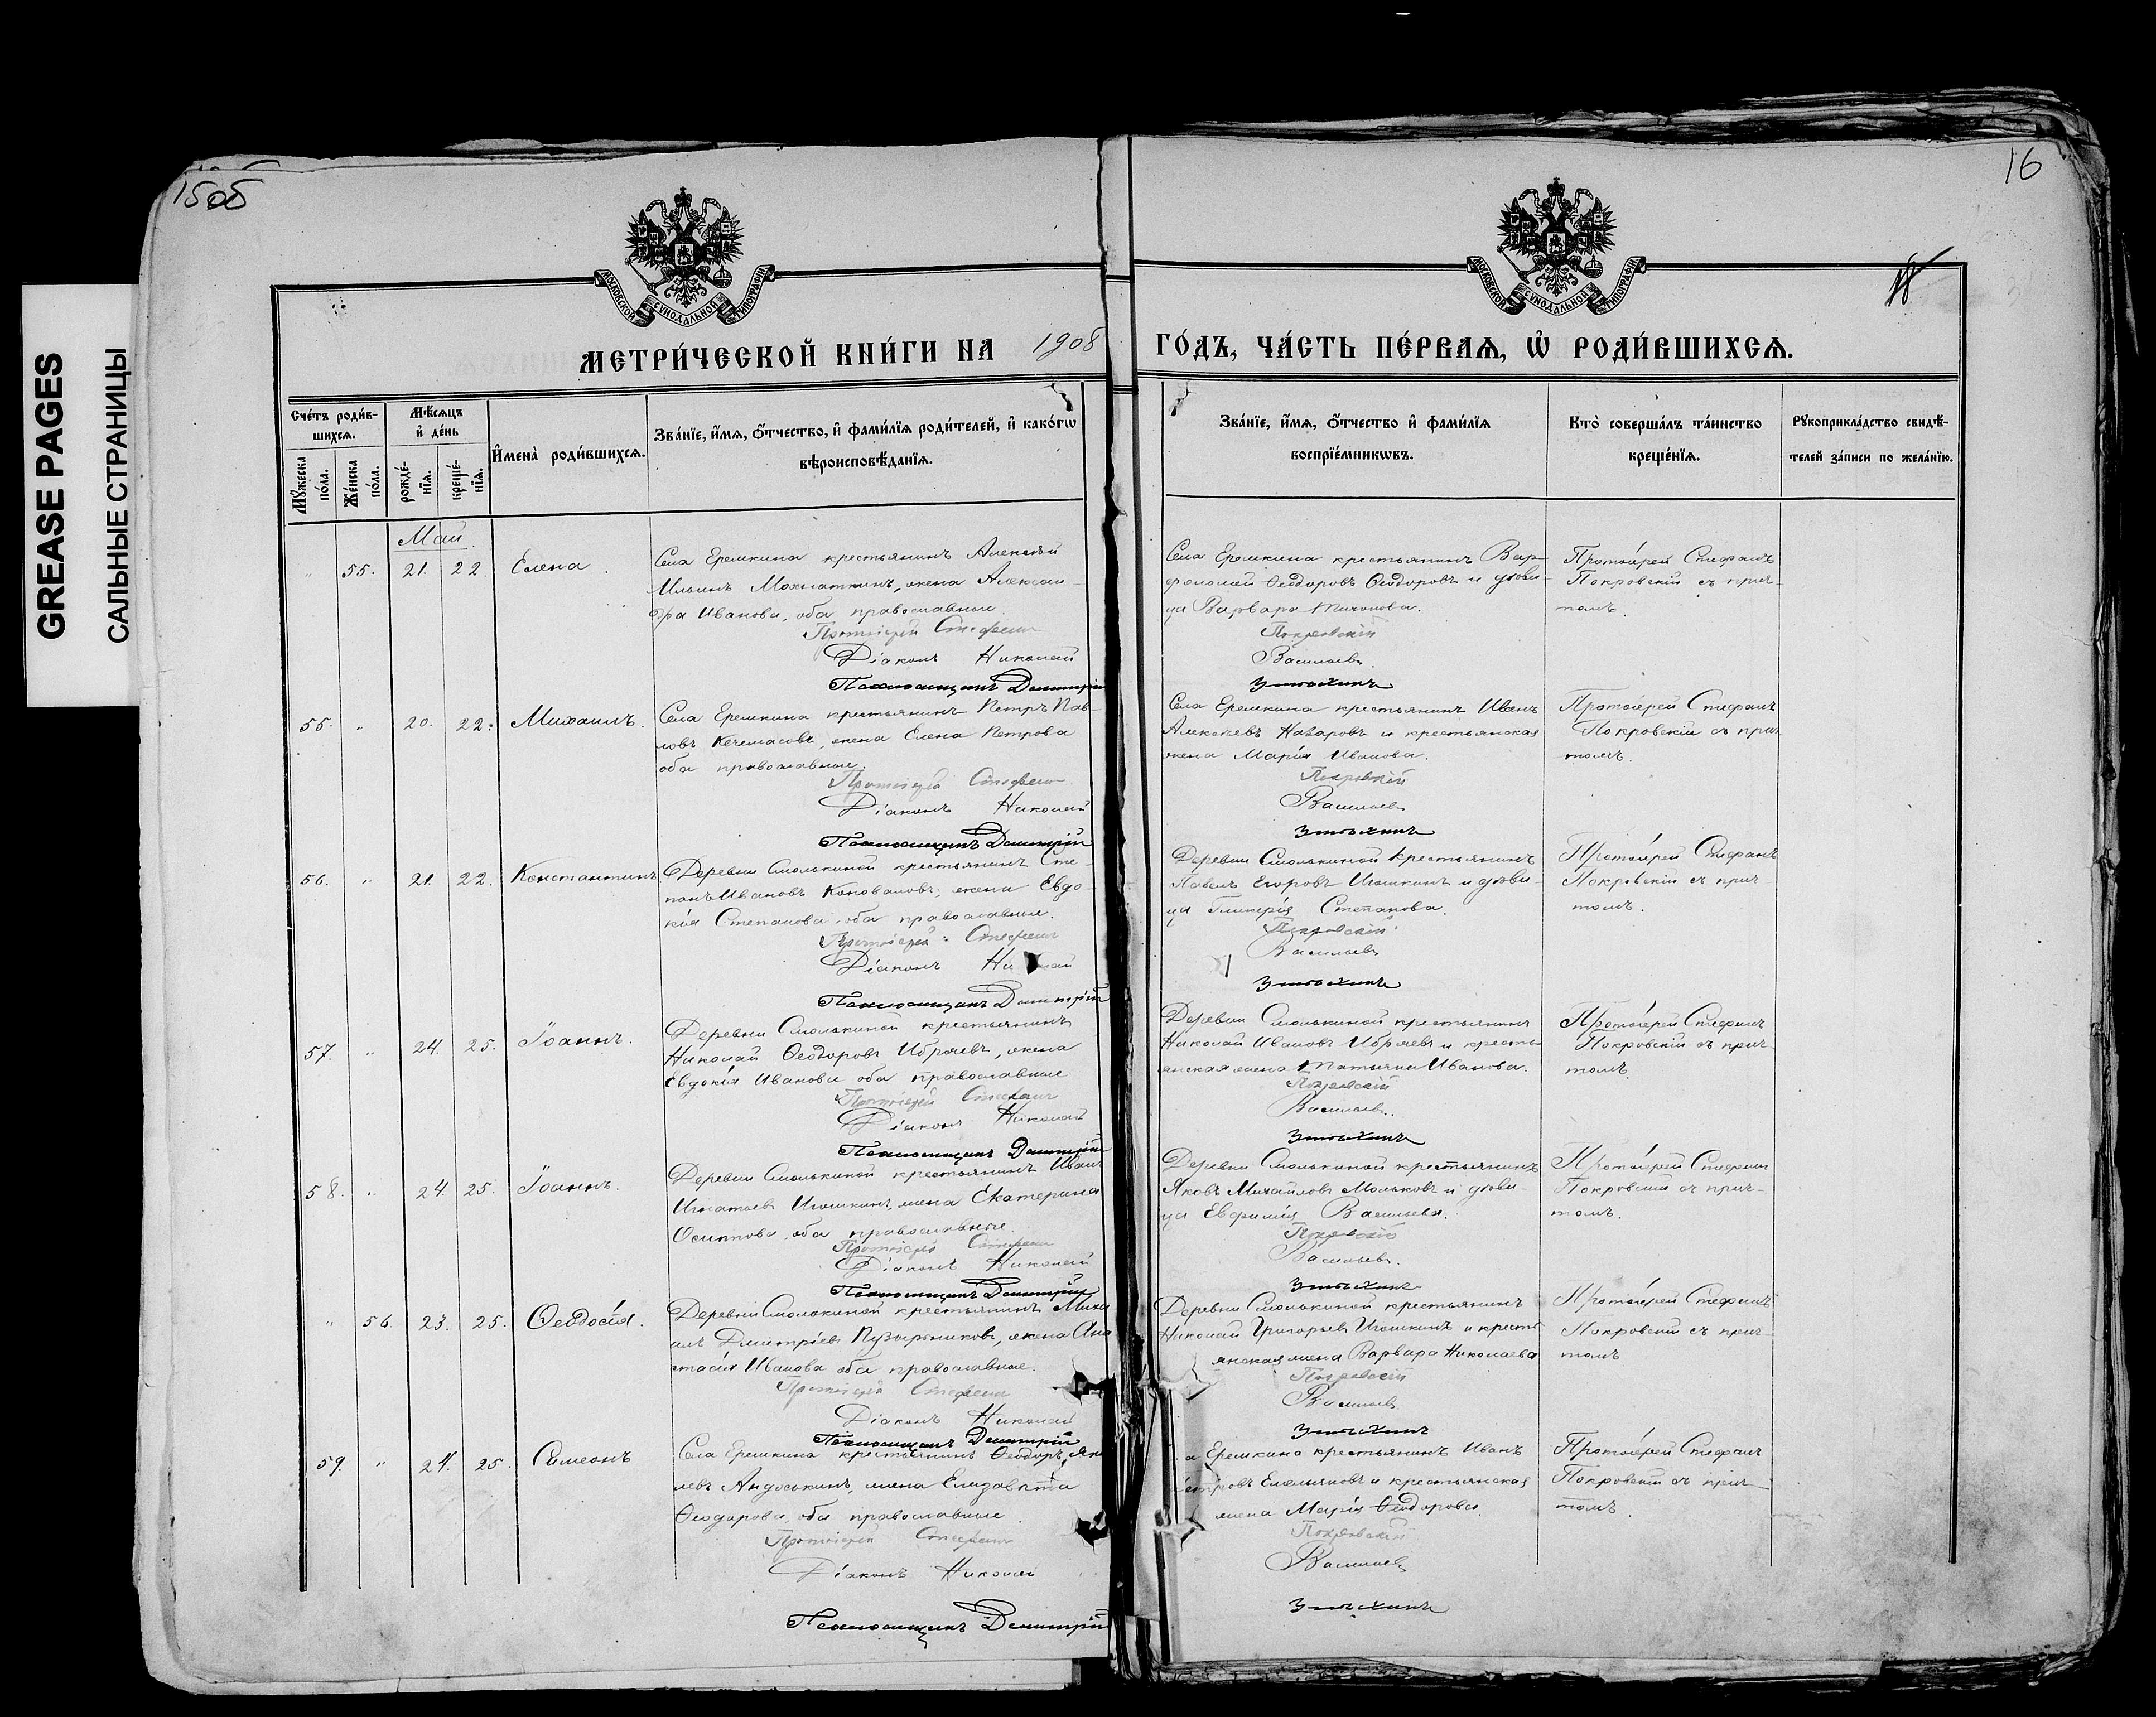 15об
16
18
GREASE PAGES
САЛЬНЫЕ СТРАНИЦЫ
МОСКОВСКОЙ СѴНОДАЛЬНОЙ ТИПОГРАФІИ
МОСКОВСКОЙ СѴНОДАЛЬНОЙ ТИПОГРАФІИ
МЕТРИ́ЧЕСКОЙ КНИ́ГИ НА 1908 ГО́ДЪ, ЧА́СТЬ ПЕ́РВАѦ, Ѡ РОДИ́ВШИХСѦ.
Сче́тъ роди́в-
шихсѧ.
Мꙋ́жеска
по́ла.
Же́нска
по́ла.
Мѣ́сѧцъ
и де́нь
рожде́-
нїѧ.
креще́-
нїѧ.
И҆мена̀ роди́вшихсѧ.
Зва́нїе, и҆́мѧ, ѻ҆́тчество, и҆ фами́лїѧ роди́телей, и҆ како́гѡ
вѣроисповѣ́данїѧ.
Зва́нїе, и҆́мѧ, ѻ҆́тчество и҆ фами́лїѧ
воспрїе́мникѡвъ.
Кто̀ соверша́лъ та́инство
креще́нїѧ.
Рꙋкоприкла́дство свидѣ́-
телей за́писи по жела́нїю.
Май
" 55. 21. 22. Елена.
Села Еремкина крестьянинъ Алексѣй
Ильинъ Мохнаткинъ, жена Александ-
ра Иванова, оба православные.
Протоіерей Стефанъ
Діаконъ Николай
Псаломщикъ Димитрій
Села Еремкина крестьянинъ Вар-
фоломей Ѳеодоровъ Ѳеодоровъ и дѣви-
ца Варвара Тихонова.
Покровскій
Васильевъ.
Протоіерей Стефанъ
Покровскій съ прич-
томъ.
55. " 20. 22. Михаилъ.
Села Еремкина крестьянинъ Петръ Пав-
ловъ Кечемасовъ, жена Елена Петрова
оба православные.
Протоіерей Стефанъ
Діаконъ Николай
Псаломщикъ Димитрій
Села Еремкина крестьянинъ Иванъ
Алексѣевъ Назаровъ и крестьянская
жена Марія Иванова.
Покровскій
Васильевъ
Протоіерей Стефанъ
Покровскій съ прич-
томъ.
56. " 21. 22. Константинъ
Деревни Смолькиной крестьянинъ Сте-
панъ Ивановъ Коноваловъ, жена Евдо-
кія Степанова оба православные.
Протоіерей Стефанъ
Діаконъ Николай
Псаломщикъ Димитрій
Деревни Смолькиной крестьянинъ
Павелъ Егоровъ Игошкинъ и дѣви-
ца Гликерія Степанова.
Покровскій
Васильевъ
Протоіерей Стефанъ
Покровскій съ прич-
томъ.
57. " 24. 25. Іоаннъ.
Деревни Смолькиной крестьянинъ
Николай Ѳеодоровъ Ибряевъ, жена
Евдокія Иванова оба православные
Протоіерей Стефанъ
Діаконъ Николай
Псаломщикъ Димитрій
Деревни Смолькиной крестьянинъ
Николай Ивановъ Ибряевъ и кресть-
янская жена Татьяна Иванова.
Покровскій
Васильевъ.
Протоіерей Стефанъ
Покровскій съ прич-
томъ
58. " 24. 25. Іоаннъ.
Деревни Смолькиной крестьянинъ Иванъ
Игнатьевъ Игошкинъ, жена Екатерина
Осипова, оба православные.
Протоіерей Стефанъ
Діаконъ Николай
Псаломщикъ Димитрій
Деревни Смолькиной крестьянинъ
Яковъ Михайловъ Мольковъ и дѣви-
ца Евфимія Васильева.
Покровскій
Васильевъ.
Протоіерей Стефанъ
Покровскій съ прич-
томъ.
" 56. 23. 25. Ѳеодосія.
Деревни Смолькиной крестьянинъ Миха
илъ Дмитріевъ Пузырниковъ, жена Ана
стасія Иванова оба православные.
Протоіерей Стефанъ
Діаконъ Николай
Псаломщикъ Димитрій
Деревни Смолькиной крестьянинъ
Николай Григорьевъ Игошкинъ и кресть
янская жена Варвара Николаева
Покровскій
Васильевъ
Протоіерей Стефанъ
Покровскій съ прич-
томъ
59. " 24. 25. Симеонъ
Села Еремкина крестьянинъ Ѳеодоръ Яко
левъ Андоськинъ, жена Елизавета
Ѳеодорова, оба православные.
Протоіерей Стефанъ
Діаконъ Николай
Псаломщикъ Димитрій
а Еремкина крестьянинъ Иванъ
етровъ Емельяновъ и крестьянская
жена Марія Ѳеодорова
Покровскій
Васильевъ
Протоіерей Стефанъ
Покровскій съ прич-
томъ.